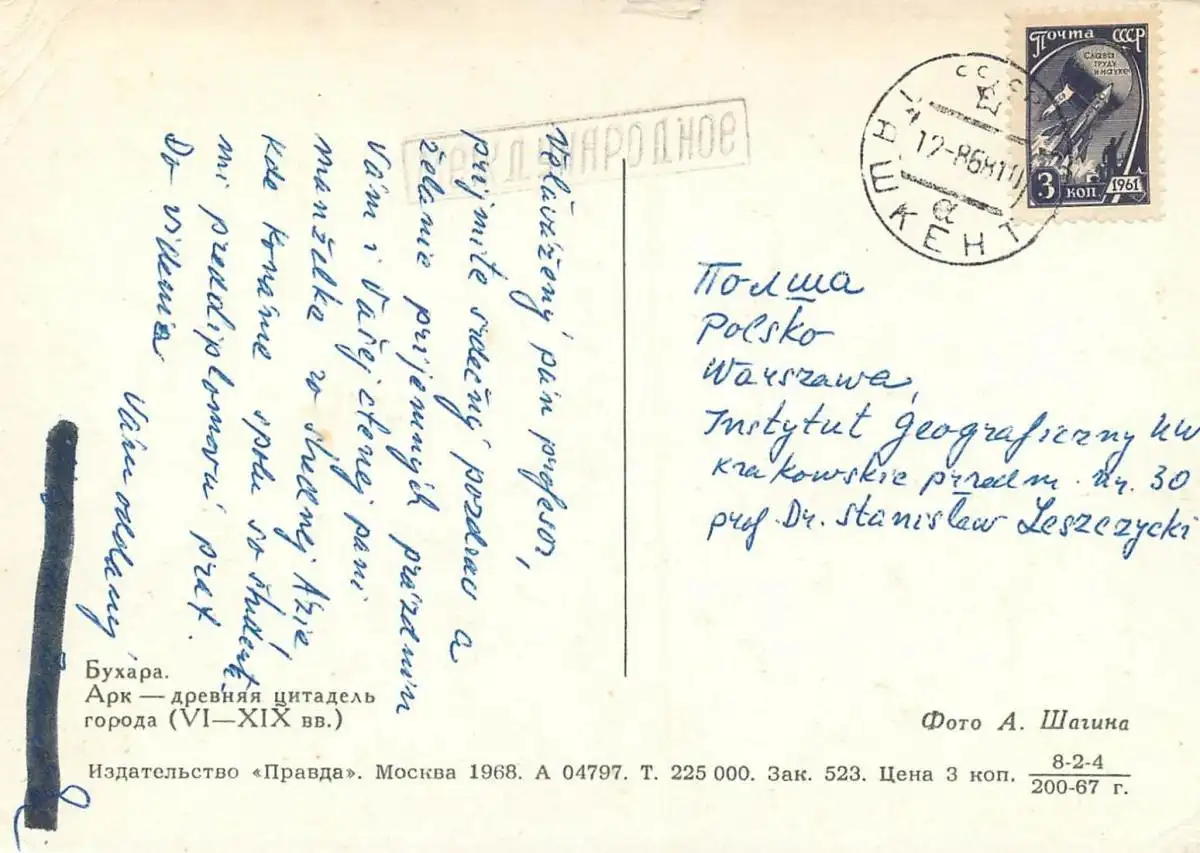 Почта СССР
Слава
труду
и науке
3 коп 1961
ТАШКЕНТ
МЕЖДУНАРОДНОЕ
Veľavážený pán profesor,
prijmite srdečný pozdrav a
želanie príjemných prázdnin
Vám i Vašej ctenej pani
manželke zo strednej Azie
kde konáme spolu so študent.
mi preddiplomovú prax.
Do videnia
Vám oddaný
Полша
Polsko
Warszawa,
Instytut Geograficzny UW
Krakowskie przedm. nr. 30
prof. Dr. Stanisław Leszczycki
Бухара.
Арк — древняя цитадель
города (VI—XIX вв.)
Фото А. Шагина
Издательство «Правда». Москва 1968. А 04797. Т. 225 000. Зак. 523. Цена 3 коп. 8-2-4
200-67 г.